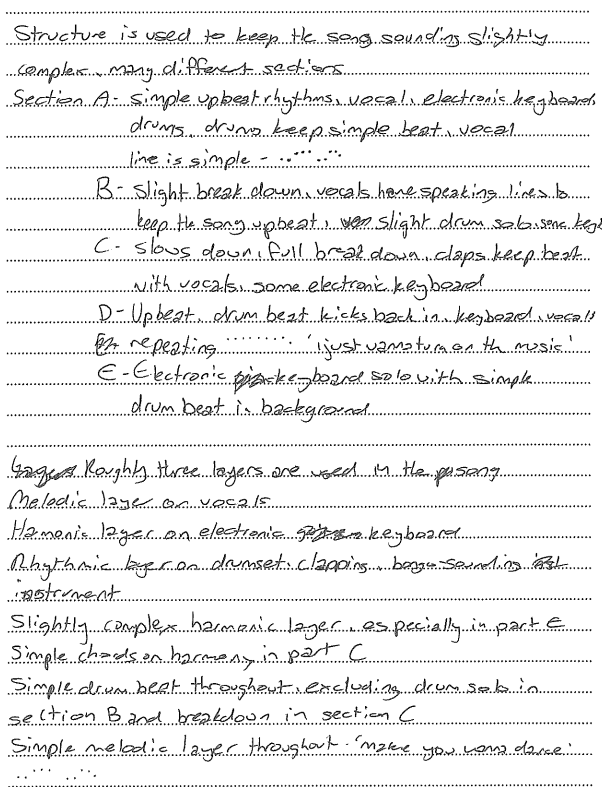 Structure is used to keep the song sounding slightly
complex, many different sections
Section A - simple upbeat rhythms, vocal, electronic keyboard,
drums, drums keep simple beat, vocal
line is simple -
B - Slight break down, vocals have speaking lines to
keep the song upbeat, slight drum solo, some key
C - slows down, full break down, claps keep beat
with vocals, some electronic keyboard
D - Upbeat, drum beat kicks back in, keyboard, vocals
repeating ......... 'i just wanna turn on th music'
E - Electronic keyboard solo with simple
drum beat in background
Roughly three layers are used in the song
Melodic layer on vocals
Harmonic layer on electronic keyboard
Rhythmic layer on drumset, clapping, bongo sounding
instrument
Slightly complex harmonic layer, especially in part E
Simple chords on harmony in part C
Simple drum beat throughout, excluding drum solo in
section B and breakdown in section C
Simple melodic layer throughout. 'make you wanna dance'